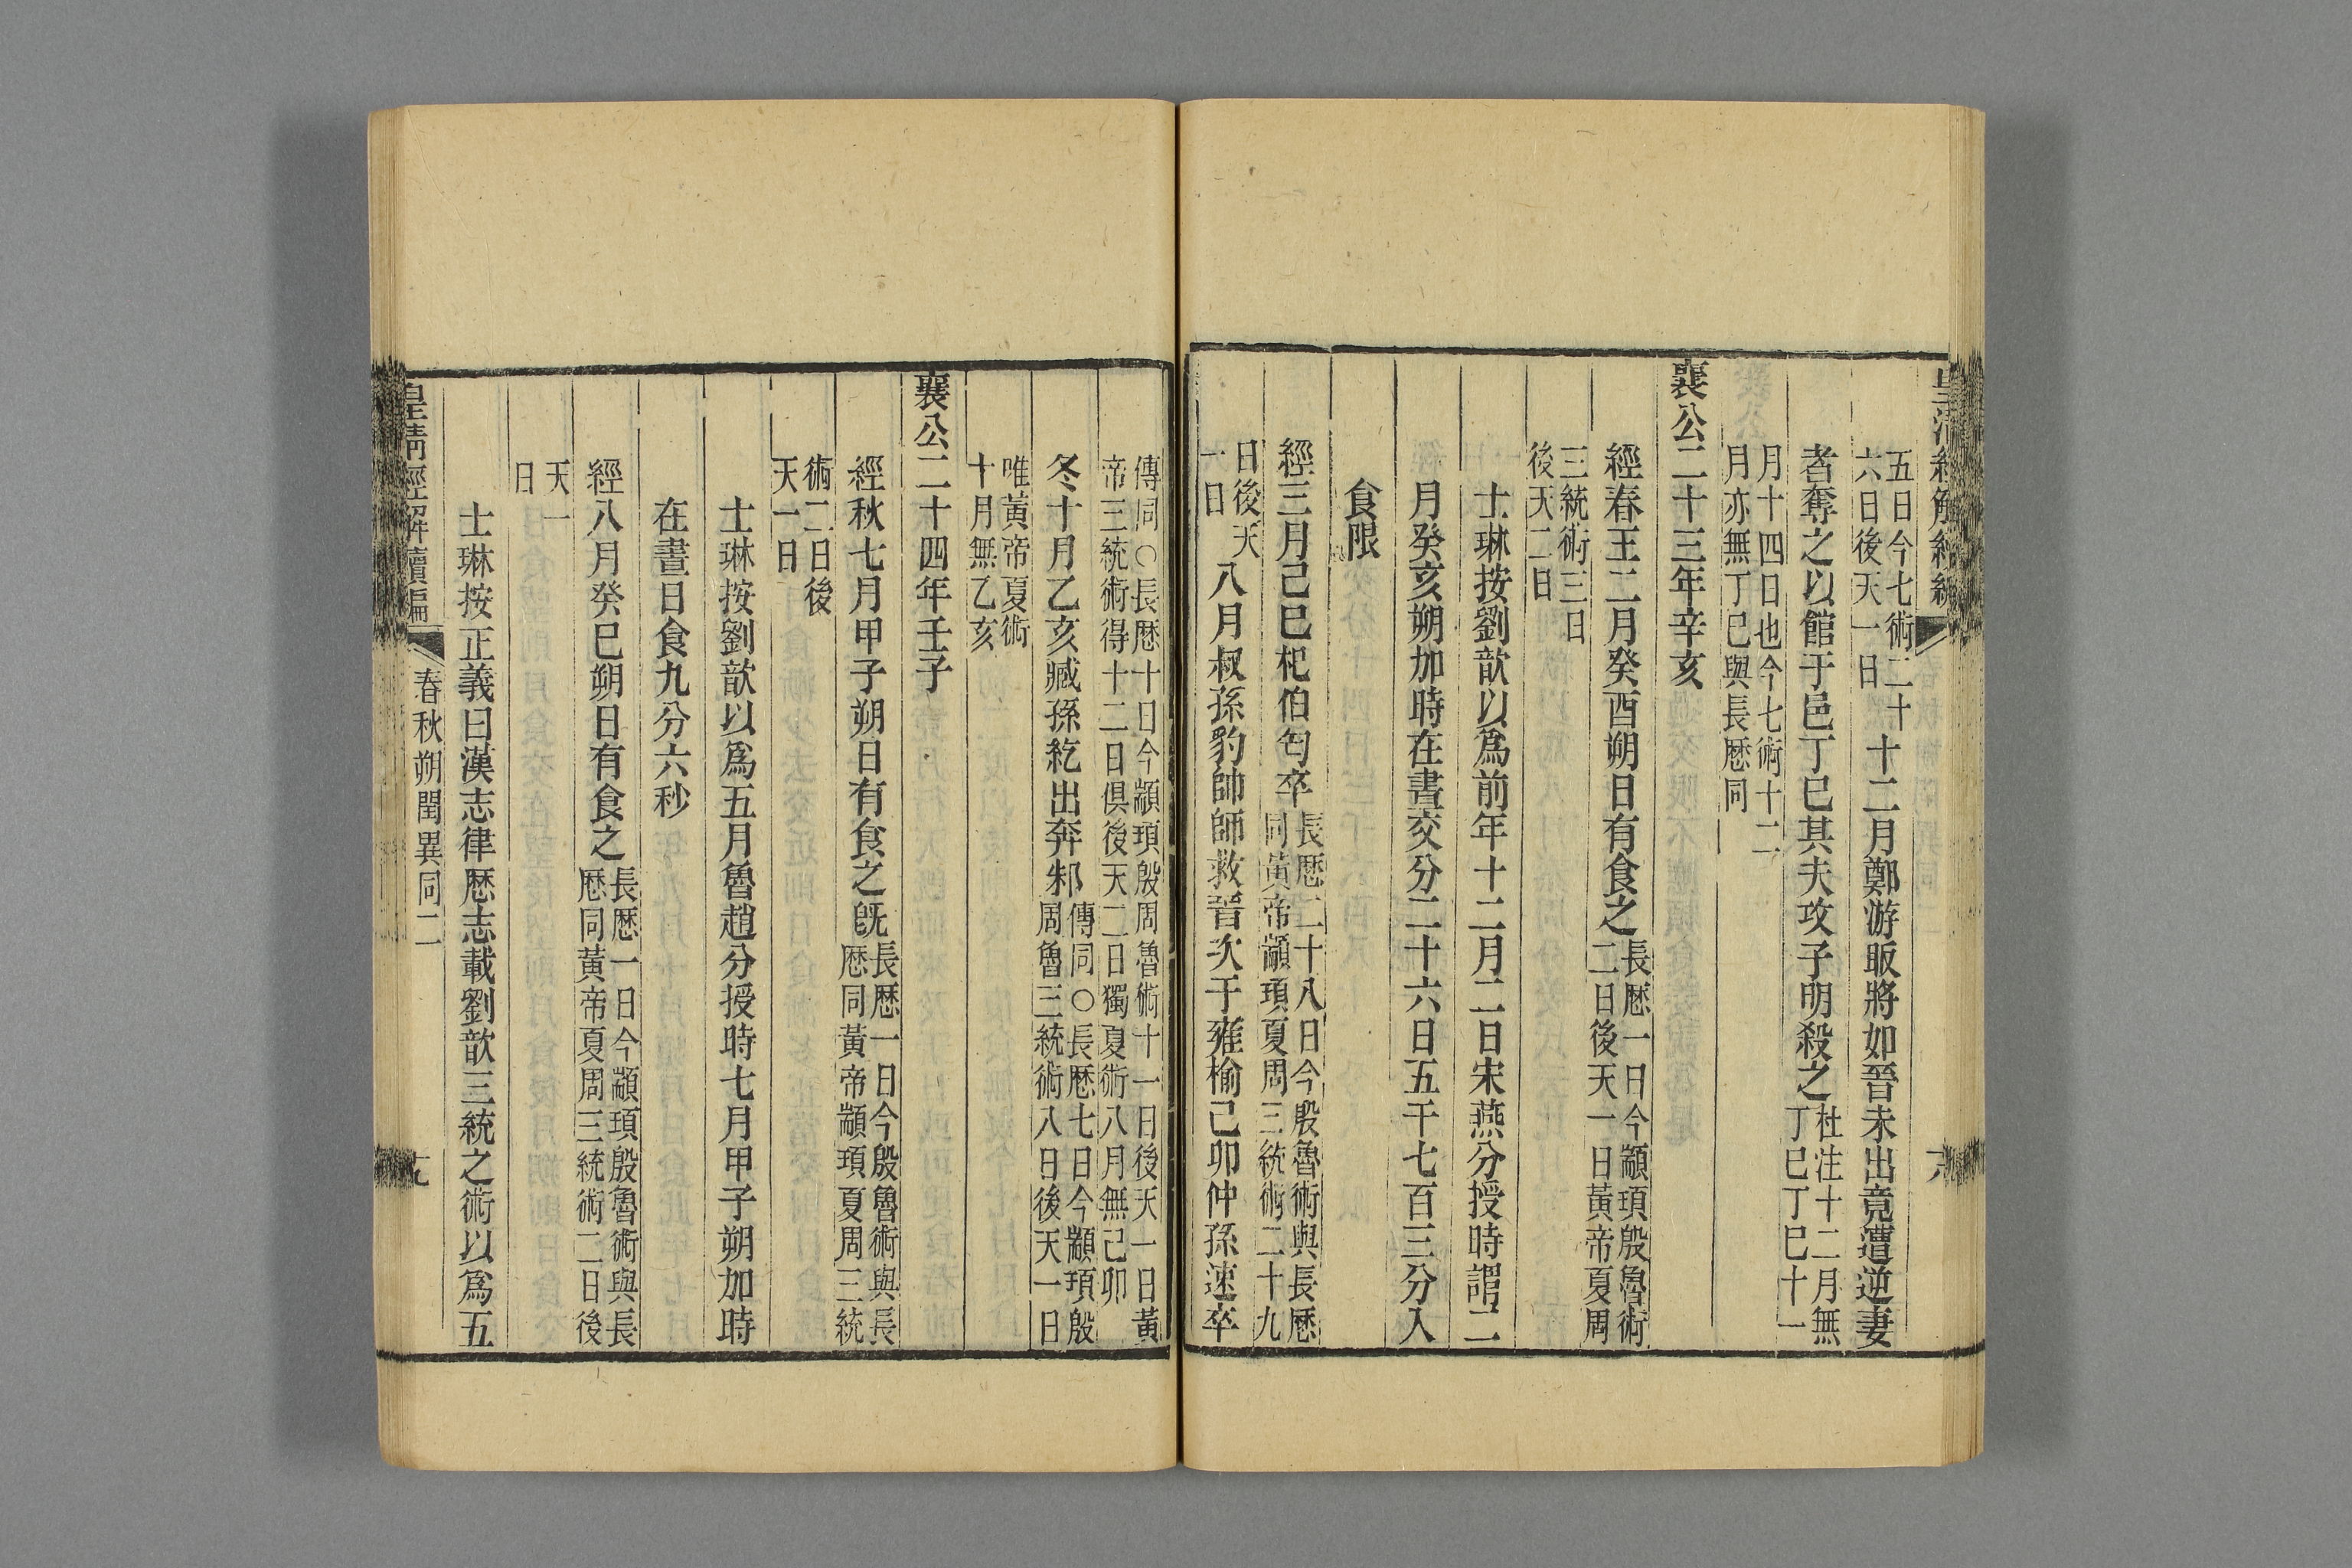 皇清經解續編
五日今七術二十
六日後天一日
十二月鄭游眅將如晉未出竟遭逆妻
者奪之以館于邑丁巳其夫攻子明殺之
杜注十二月無
丁巳丁巳十一
月十四日也今七術十二
月亦無丁巳與長厯同
襄公二十三年辛亥
經春王二月癸酉朔日有食之
長厯一日今顓頊殷魯術
二日後天一日黃帝夏周
三統術三日
後天二日
士琳按劉歆以爲前年十二月二日宋燕分授時謂二
月癸亥朔加時在晝交分二十六日五千七百三分入
食限
經三月己巳杞伯匄卒
長厯二十八日今殷魯術與長厯
同黃帝顓頊夏周三統術二十九
日後天
一日
八月叔孫豹帥師救晉次于雍榆己卯仲孫速卒
傳同○長厯十日今顓頊殷周魯術十一日後天一日黃
帝三統術得十二日俱後天二日獨夏術八月無己卯
冬十月乙亥臧孫紇出奔邾
傳同○長厯七日今顓頊殷
周魯三統術八日後天一日
唯黃帝夏術
十月無乙亥
襄公二十四年壬子
經秋七月甲子朔日有食之旣
長厯一日今殷魯術與長
厯同黃帝顓頊夏周三統
術二日後
天一日
士琳按劉歆以爲五月魯趙分授時七月甲子朔加時
在晝日食九分六秒
經八月癸巳朔日有食之
長厯一日今顓頊殷魯術與長
厯同黃帝夏周三統術二日後
天一
日
士琳按正義曰漢志律厯志載劉歆三統之術以爲五
皇清經解續編
春秋朔閏異同二
十九